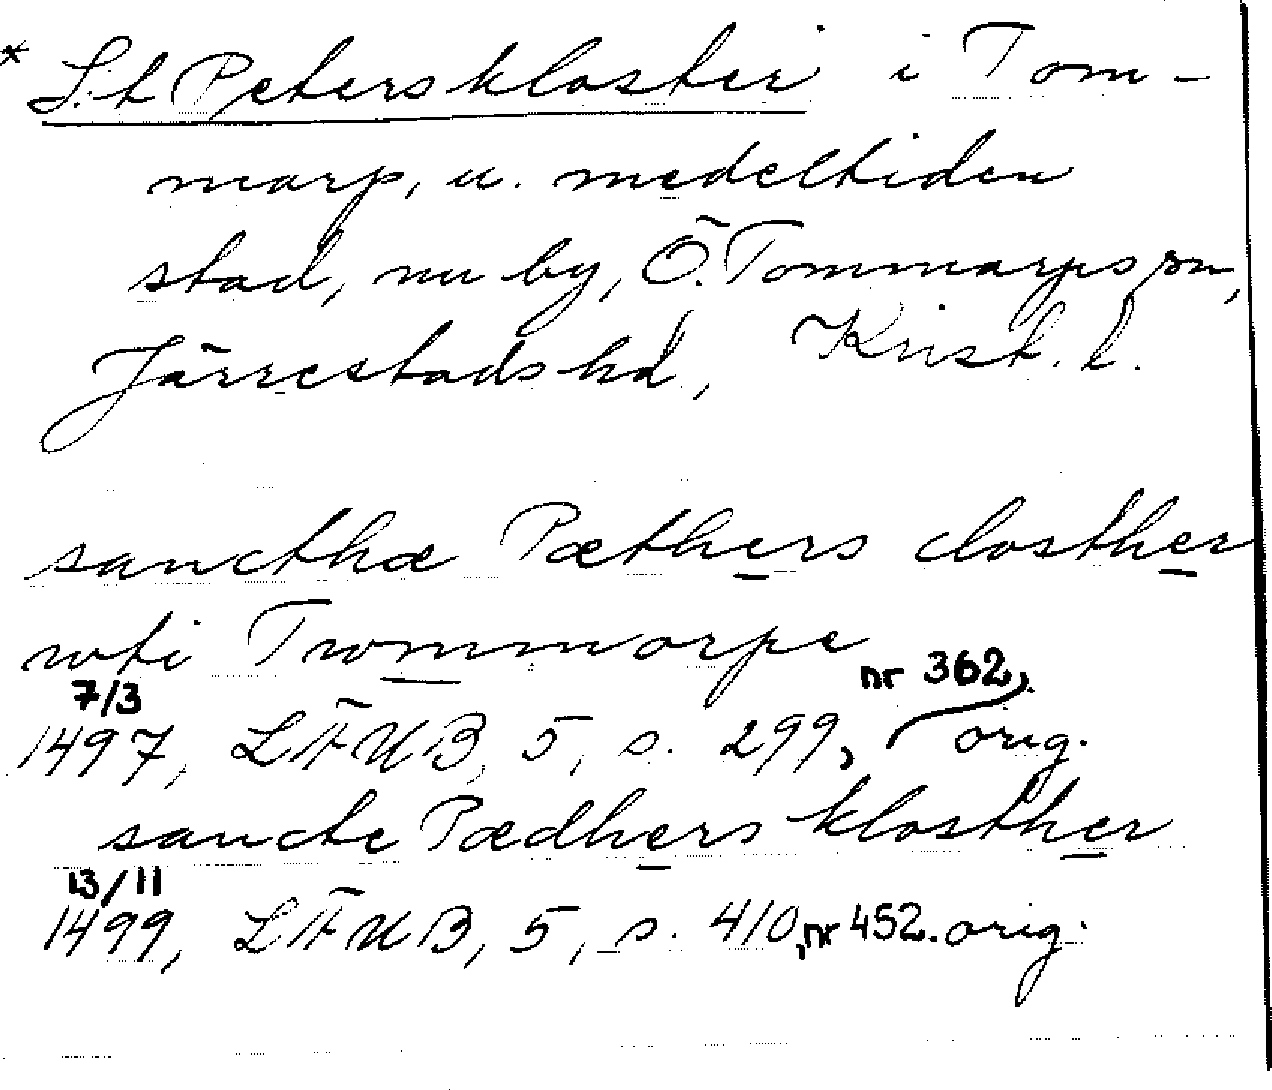 * S:t Peterskloster i Tom-
marp, u. medeltiden
stad, nu by, Ö. Tommarps sn,
Järrestads hd, Krist. l.
sancthæ Pæthers closther
wti Twmmorpe
7/3 nr 362,
1497, LÄUB, 5, s. 299, orig.
sancte Pædhers klosther
13/11
1499, LÄUB, 5, s. 410, nr 452. orig.